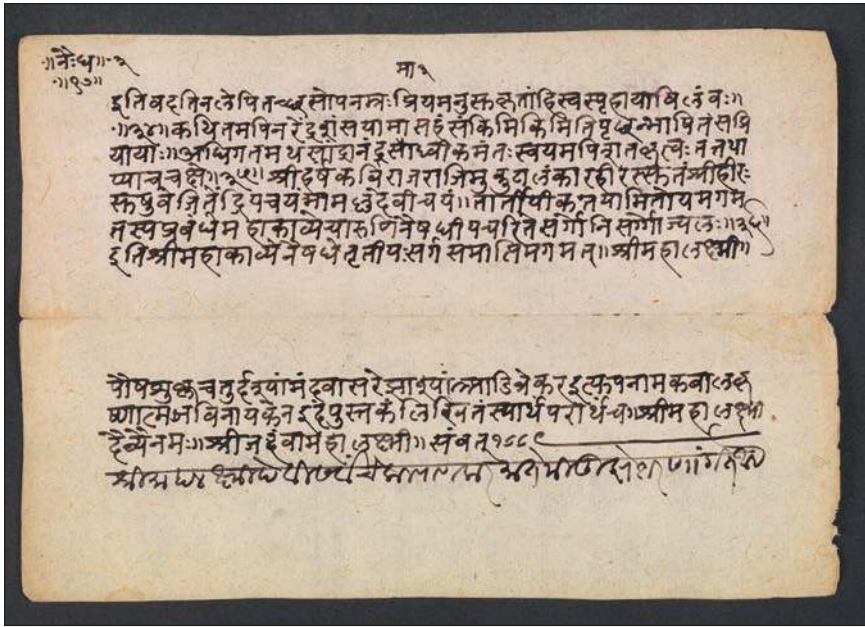 ॥नैःध॥३
॥१७॥
मा ३
इति वदति नले पि तच्च सोपनम्रः प्रियमनु सुकृतां हि स्वस्पृहाया विलंबः॥
॥३४॥ कथितमपि नरेंद्रः शंसयामास हंसं किमिति किमिति पृच्छन्भाषितं स प्रि
यायाः॥ अधिगतमथ सांद्रानंद माध्वीकमंतः स्वयमपि शतकृत्वः तत्तथा
प्याचचक्षे॥३५॥ श्रीहर्षं कविराजराजिमुकुटालंकारहीरः सुतं श्रीहीरः
सुषुवे जितेंद्रियचयं मामल्लदेवी च यं॥ तार्तीयीकतया मितोयमगम
तस्य प्रबंधे महाकाव्ये चारुणि नैषधीयचरिते सर्गो निसर्गोज्वलः॥३६॥
इति श्रीमहाकाव्ये नैषधे तृतीयः सर्ग समाप्तिमगमत्॥ श्रीमहालक्ष्मी॥
पौषशुक्लचतुर्दश्यां मंदवासरे काश्यां इत्युपनामकबालकृ
ष्णात्मजविनायकेन इदं पुस्तकं लिखितं स्वार्थं परार्थं च॥ श्रीमहालक्ष्मी
दैव्यै नमः॥ श्रीजगदंबा महालक्ष्मी॥ संवत् १८८९